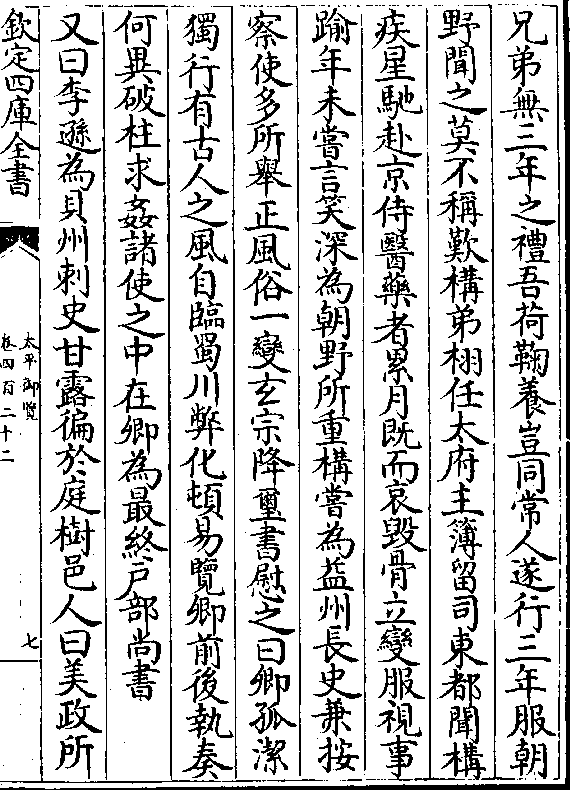 兄弟無三年之禮吾荷鞠養豈同常人遂行三年服朝
野聞之莫不稱歎構弟栩任太府主簿留司東都聞構
疾星馳赴京侍醫藥者累月既而哀毀骨立變服視事
踰年未嘗言笑深為朝野所重構嘗為益州長史兼按
察使多所舉正風俗一變玄宗降璽書慰之曰卿孤潔
獨行有古人之風自臨蜀川弊化頓易覽卿前後執奏
何異破柱求姦諸使之中在卿為最終戶部尚書
又曰李遜為貝州刺史甘露徧於庭樹邑人曰美政所
欽定四庫全書
太平御覽
卷四百二十二
七